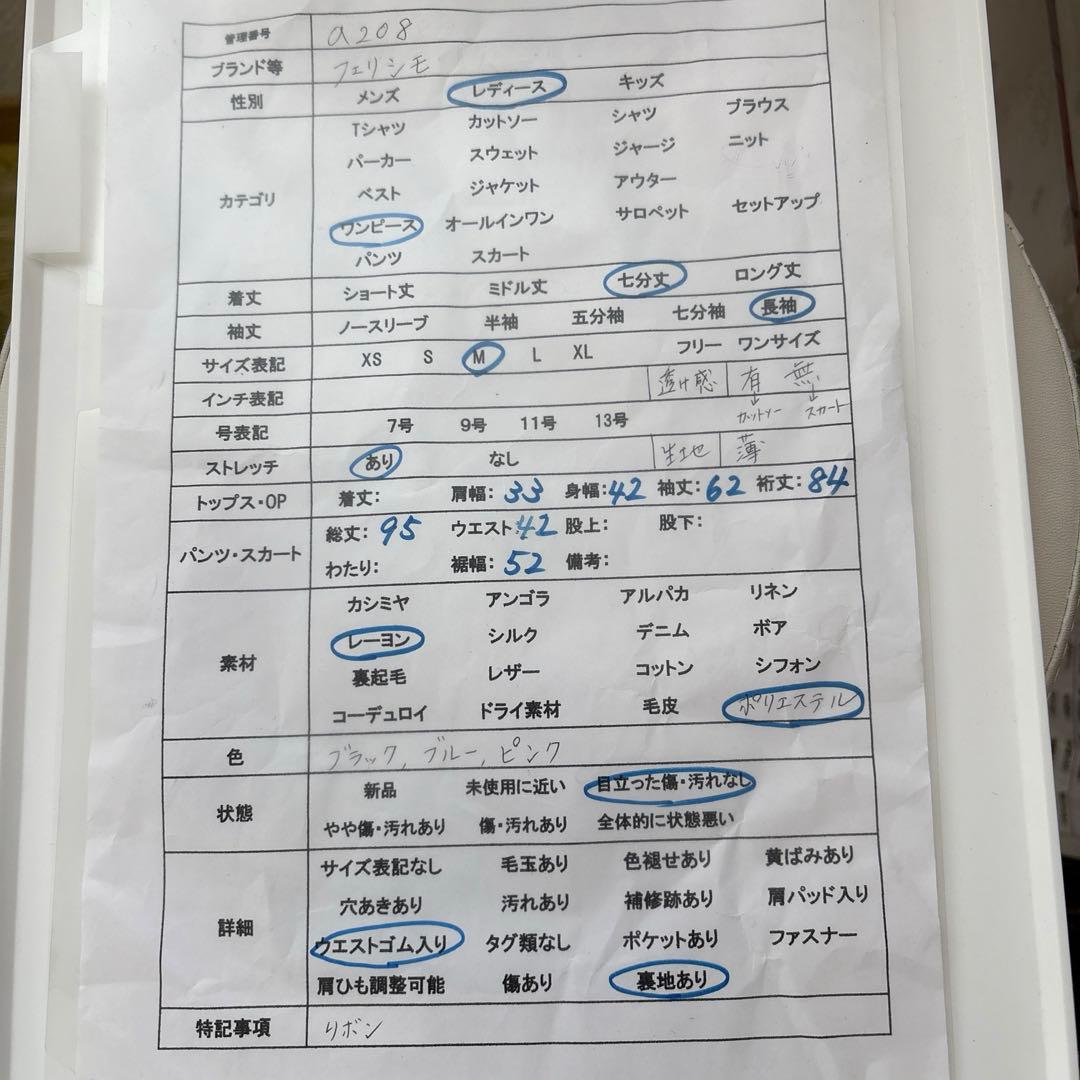 管理番号 a208
ブランド等 フェリシモ
性別 メンズ レディース キッズ
カテゴリ
Tシャツ カットソー シャツ ブラウス
パーカー スウェット ジャージ ニット
ベスト ジャケット アウター
ワンピース オールインワン サロペット セットアップ
パンツ スカート
着丈 ショート丈 ミドル丈 七分丈 ロング丈
袖丈 ノースリーブ 半袖 五分袖 七分袖 長袖
サイズ表記 XS S M L XL フリー ワンサイズ
インチ表記 透け感 有 無
カットソー スカート
号表記 7号 9号 11号 13号
ストレッチ あり なし 生地 薄
トップス・OP 着丈: 肩幅:33 身幅:42 袖丈:62 裄丈:84
パンツ・スカート
総丈:95 ウエスト:42 股上: 股下:
わたり: 裾幅:52 備考:
素材
カシミヤ アンゴラ アルパカ リネン
レーヨン シルク デニム ボア
裏起毛 レザー コットン シフォン
コーデュロイ ドライ素材 毛皮 ポリエステル
色 ブラック, ブルー, ピンク
状態
新品 未使用に近い 目立った傷・汚れなし
やや傷・汚れあり 傷・汚れあり 全体的に状態悪い
詳細
サイズ表記なし 毛玉あり 色褪せあり 黄ばみあり
穴あきあり 汚れあり 補修跡あり 肩パッド入り
ウエストゴム入り タグ類なし ポケットあり ファスナー
肩ひも調整可能 傷あり 裏地あり
特記事項 リボン